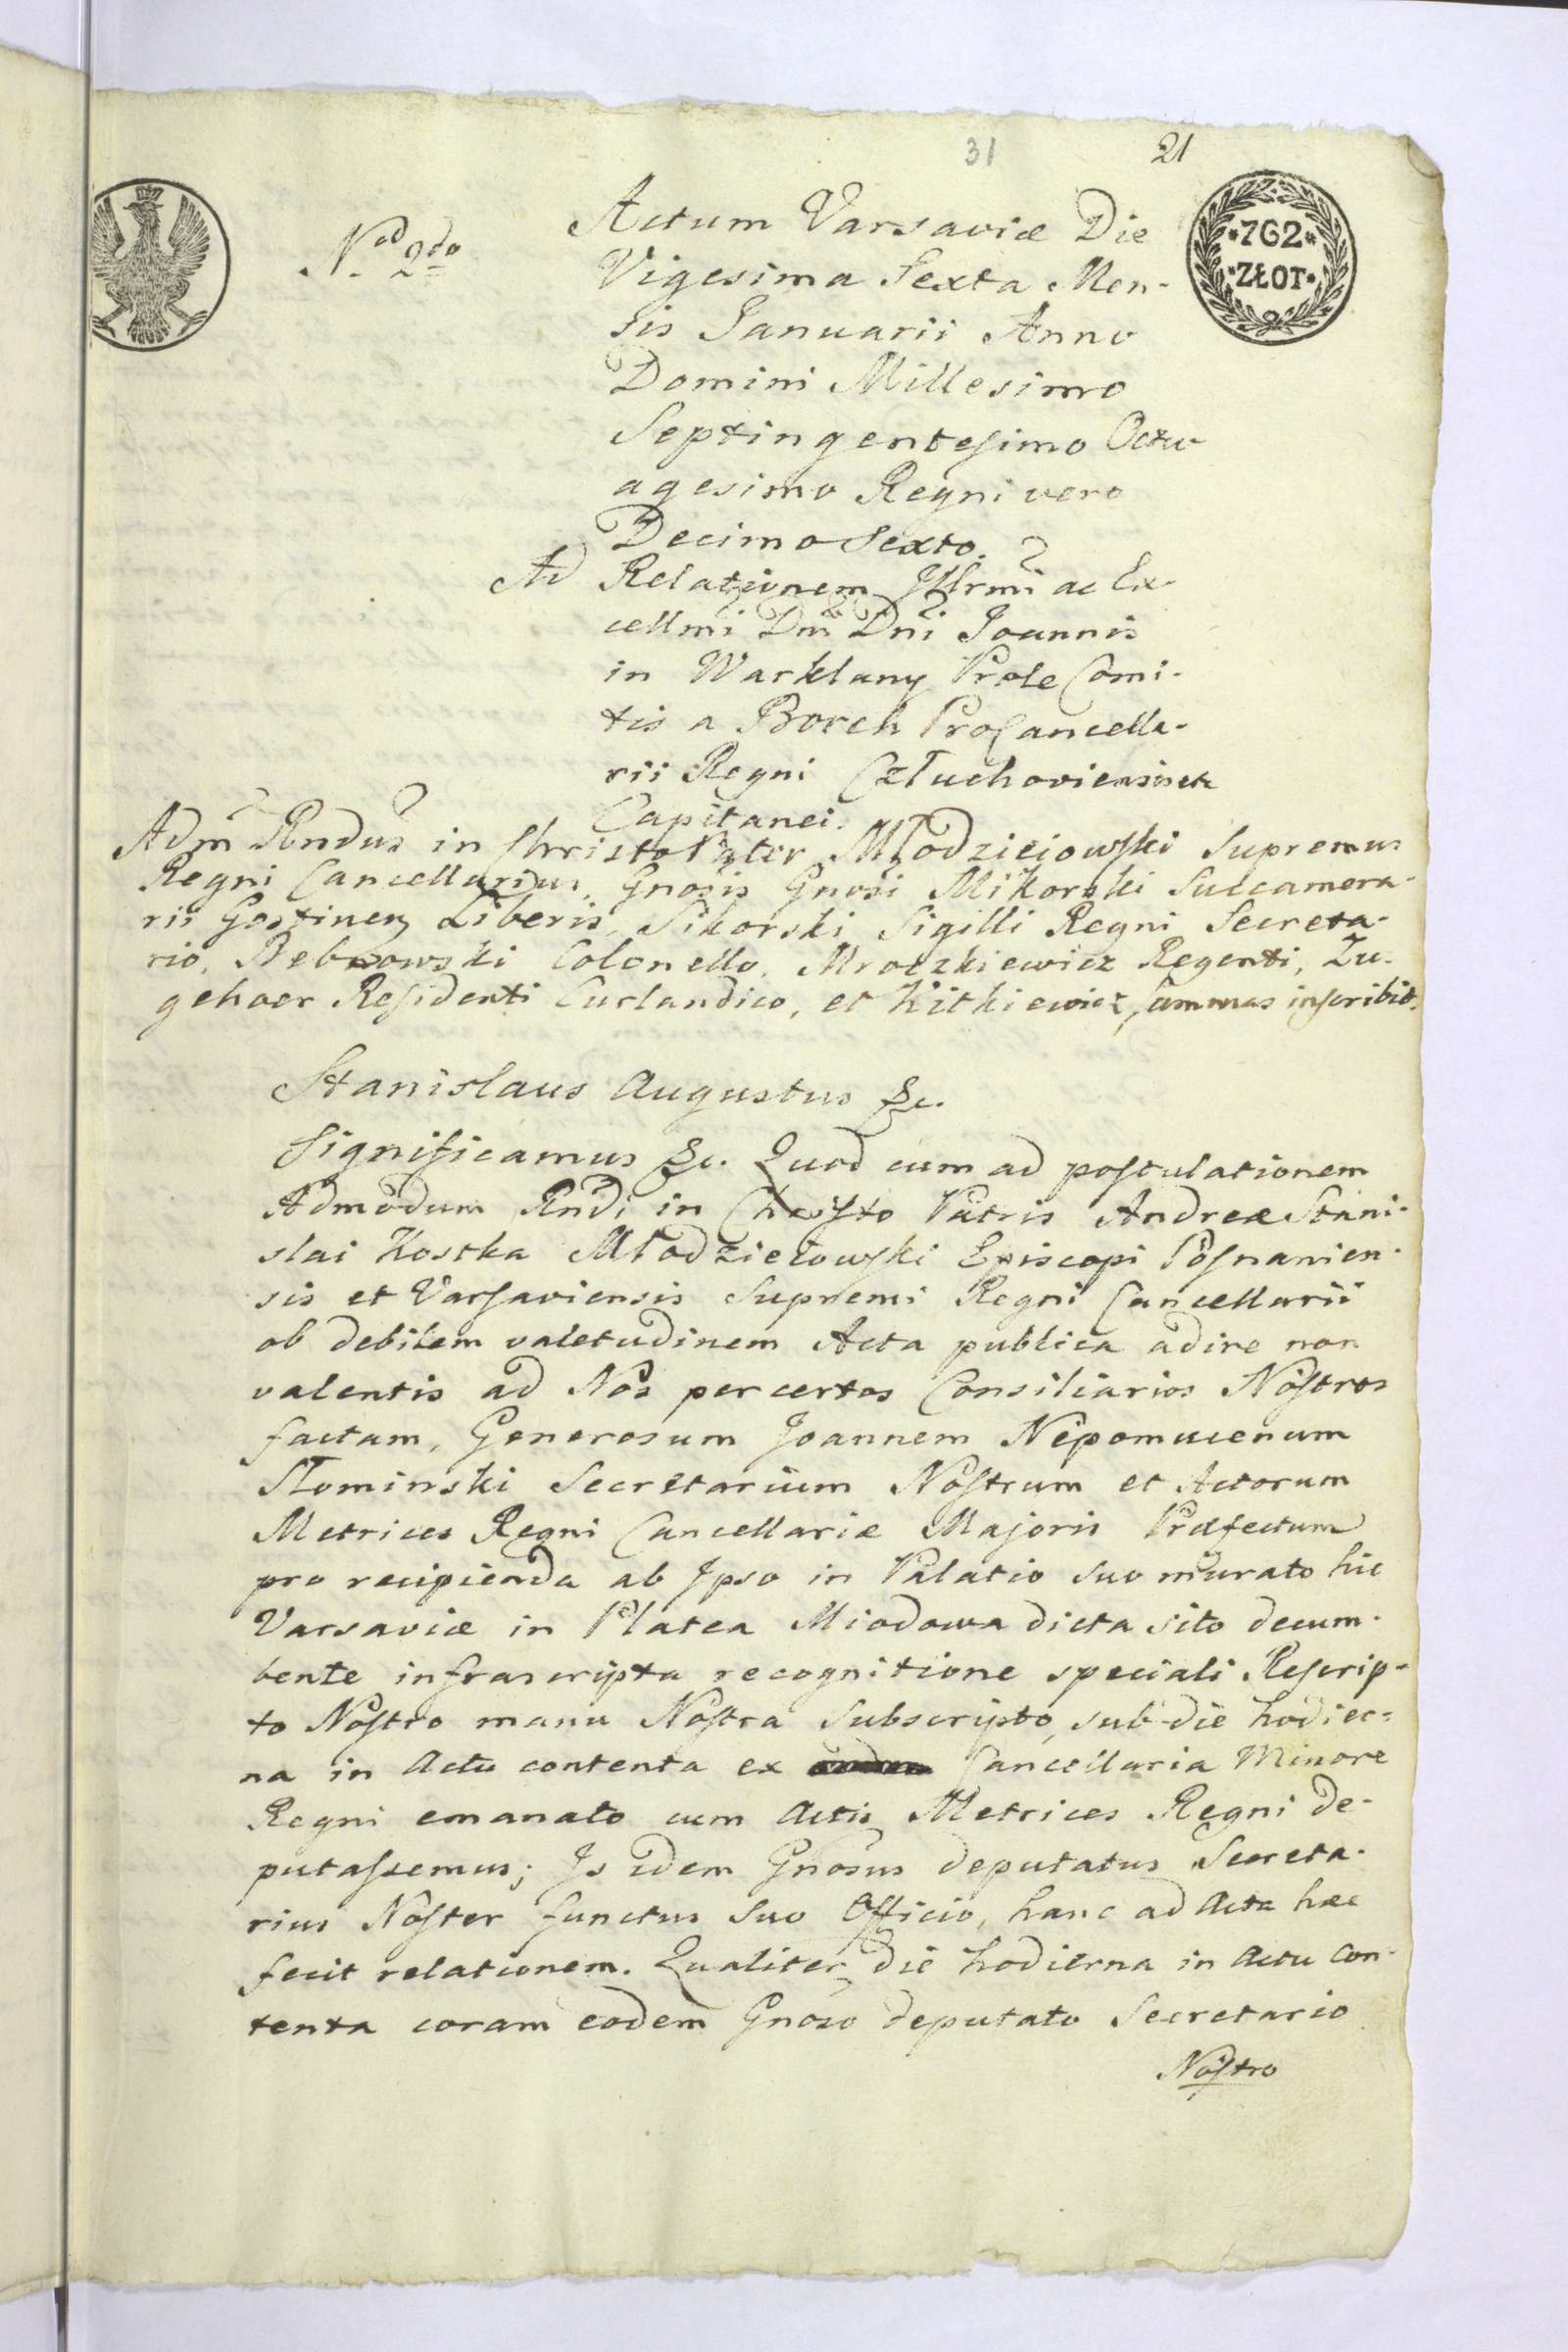 31
21
Nro 2do
*7G2*
*ZŁOT*
Actum Varsaviæ Die
Vigesima Sexta Men-
sis Januarii Anno
Domini Millesimo
Septingentesimo Octu
agesimo Regni vero
Decimo Sexto.
Ad Relationem Jllrmi ac Ex-
cellmi Dni Dni Joannis
in Warklany Prole Comi-
tis a Borch ProCancella-
rii Regni Człuchoviensis etc
Capitanei.
Adm Rndus in Christo Pater Młodzieiowski Supremus
Regni Cancellarius, Gnosis Gnosi Mikorski Succamera-
rii Gostinen Liberis, Sikorski Sigilli Regni Secreta-
rio, Bebnowski Colonello, Mroczkiewicz Regenti, Zu-
gehoer Residenti Curlandico, et Kitkiewicz, Summas inscribit.
Stanislaus Augustus &c.
Significamus &c. Quod cum ad postulationem
Admodum Rndi in Christo Patris Andreæ Stani-
slai Kostka Młodzieiowski Episcopi Posnanien-
sis et Varsaviensis Supremi Regni Cancellarii
ob debilem valetudinem Acta publica adire non
valentis ad Nos per certos Consiliarios Nostros
factam, Generosum Joannem Nepomucenum
Słominski Secretarium Nostrum et Actorum
Metrices Regni Cancellariæ Majoris Præfectum
pro recipienda ab Jpso in Palatio suo murato hic
Varsaviæ in Platea Miodowa dicta sito decum-
bente infrascripta recognitione speciali Rescrip-
to Nostro manu Nostra Subscripto, sub die hodier-
na in Actu contenta ex Cancellaria Minore
Regni emanato cum Actis Metrices Regni de-
putassemus; Js idem Gnosus deputatus Secreta-
rius Noster functus suo Officio, hanc ad Acta hæc
fecit relationem. Qualiter die hodierna in Actu Con-
tenta coram eodem Gnoso deputato Secretario
Nostro